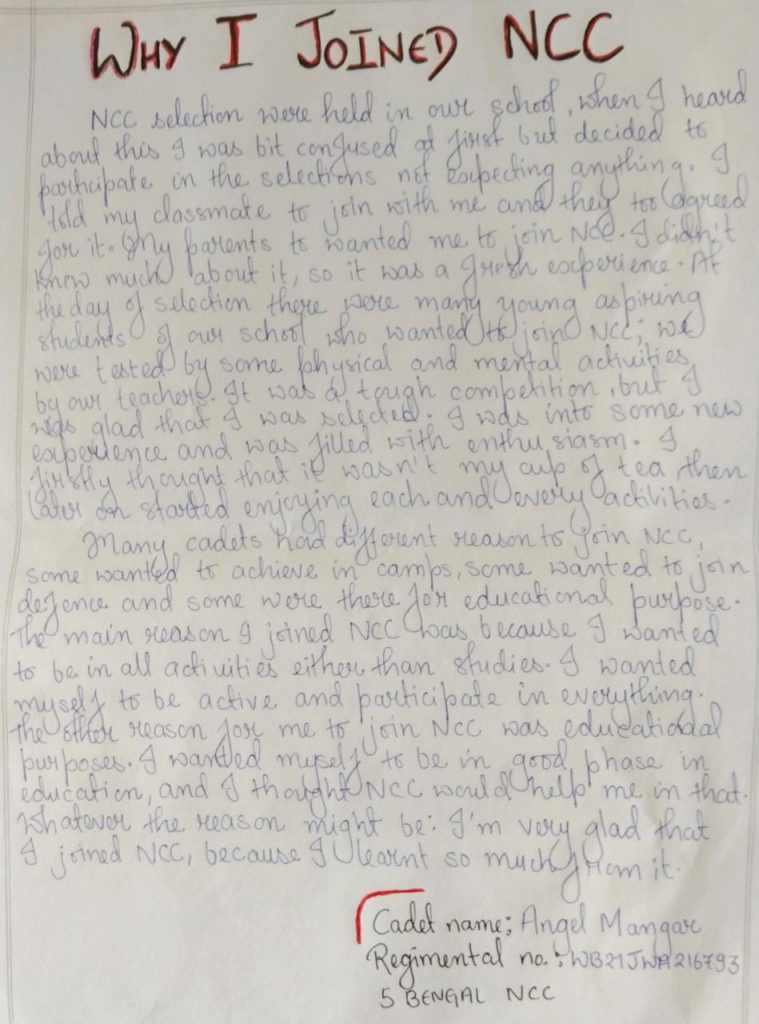 WHY I JOINED NCC
NCC selection were held in our school, when I heard
about this I was bit confused at first but decided to
participate in the selections not expecting anything. I
told my classmate to join with me and they too agreed
for it. My parents to wanted me to join NCC. I didn't
knew much about it, so it was a fresh experience. At
the day of selection there were many young aspiring
students of our school who wanted to join NCC; we
were tested by some physical and mental activities
by our teachers. It was a tough competition, but I
was glad that I was selected. I was into some new
experience and was filled with enthusiasm. I
firstly thought that it wasn't my cup of tea then
later on started enjoying each and every activities.
Many cadets had different reason to join NCC,
some wanted to achieve in camps, some wanted to join
defence and some were there for educational purpose.
The main reason I joined NCC was because I wanted
to be in all activities either than studies. I wanted
myself to be active and participate in everything.
The other reason for me to join NCC was educational
purposes. I wanted myself to be in good phase in
education, and I thought NCC would help me in that.
Whatever the reason might be: I'm very glad that
I joined NCC, because I learnt so much from it.
Cadet name; Angel Mangar
Regimental no.: WB21JWA216793
5 BENGAL NCC